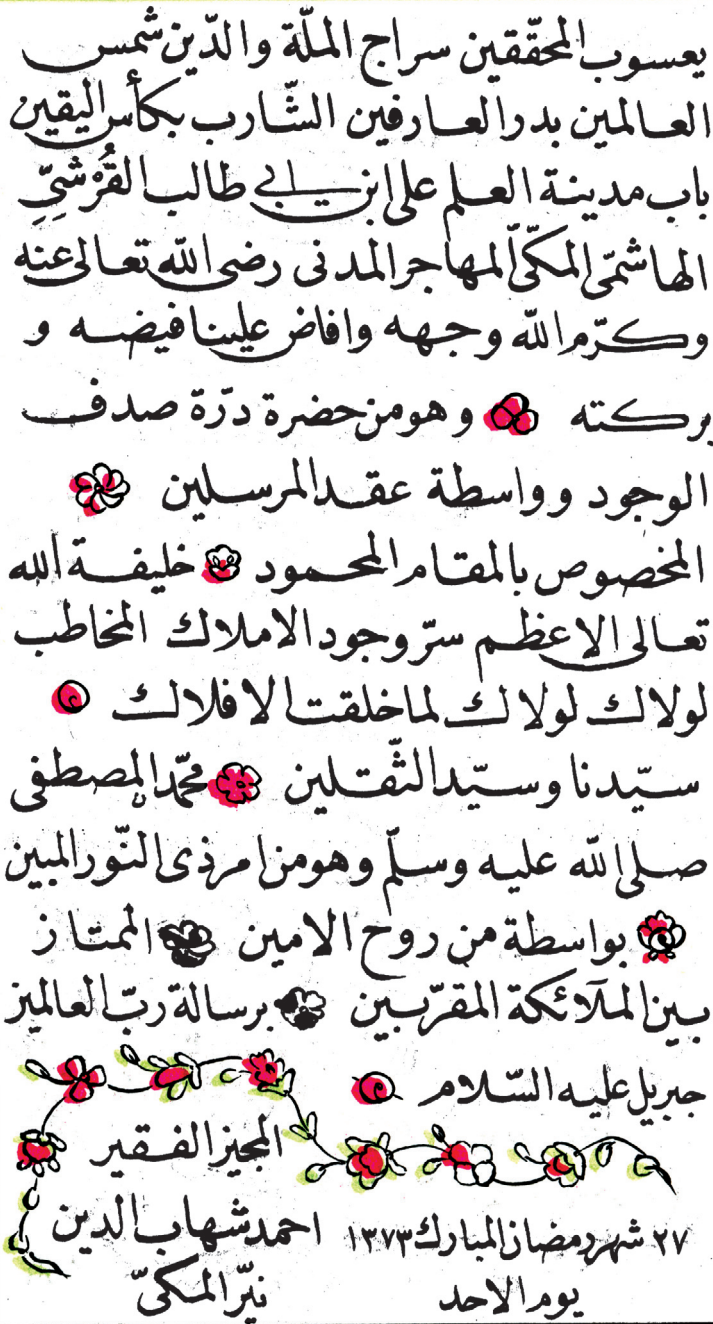 يعسوب المحقّقين سراج الملّة والدّين شمس
العالمين بدر العارفين الشّارب بكأس اليقين
باب مدينة العلم على ابن ابى طالب القُرْشِيّ
الهاشمّى المكّىّ المهاجر المدنى رضى الله تعالى عنه
وكرّم الله وجهه وافاض علينا فيضه و
بركته وهو من حضرة درّة صدف
الوجود وواسطة عقد المرسلين
المخصوص بالمقام المحمود خليفة الله
تعالى الاعظم سرّ وجود الاملاك المخاطب
لولاك لولاك لما خلقت الافلاك
سيّدنا وسيّد الثّقلين محمّد المصطفى
صلى الله عليه وسلّم وهو من امر ذى النّور المبين
بواسطة من روح الامين الممتاز
بين الملآئكة المقرّبين برسالة ربّ العالمين
جبريل عليه السّلام
المجيز الفقير
احمد شهاب الدين
نيّر المكىّ
٢٧ شهر رمضان المبارك ١٣٧٣
يوم الاحد